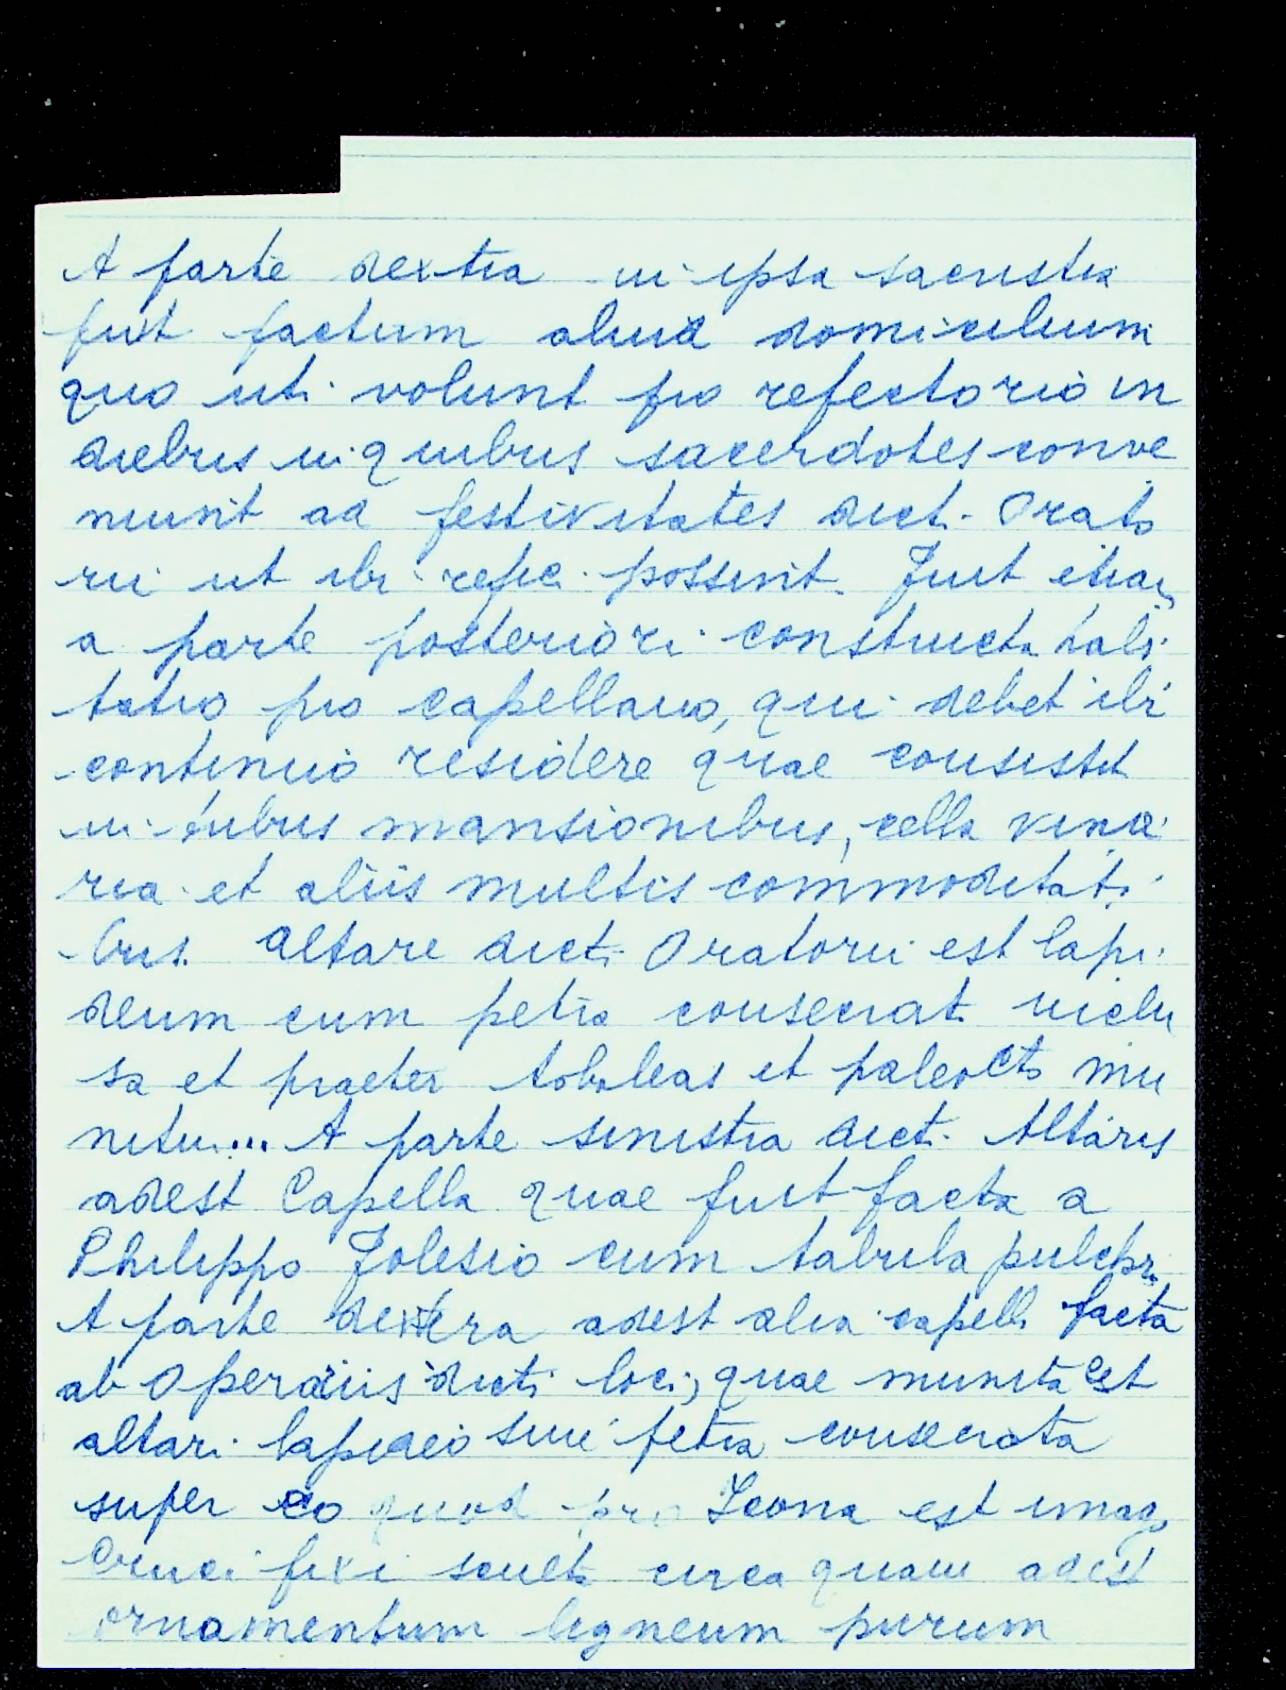 A parte dextra in ipsa sacristia
fuit factum aliud domicilium
quo uti volunt pro refectorio in
diebus in quibus sacerdotes conve
niunt ad festivitates dict. Orato
rii ut ibi refici possint. Fuit etiam
a parte posteriori constructa habi
tatio pro capellano, qui debet ibi
continuo residere quae consistit
in tribus mansionibus, cella vina
ria et aliis multis commoditati
bus. Altare dicti Oratorii est lapi
deum cum petra consecrat. inclu
sa et praeter tobaleas et paleocto mu
nitu... A parte sinistra dict. Altaris
adest Capella quae fuit facta a
Philippo Jolesio cum tabula pulchr.
A parte dextera adest alia capell. facta
ab Operariis dicti loci, quae munita est
altari lapideo sine petra consecrata
super eo quod pro Icona est imag.
Crucifixi sculta circa quam adest
ornamentum ligneum purum